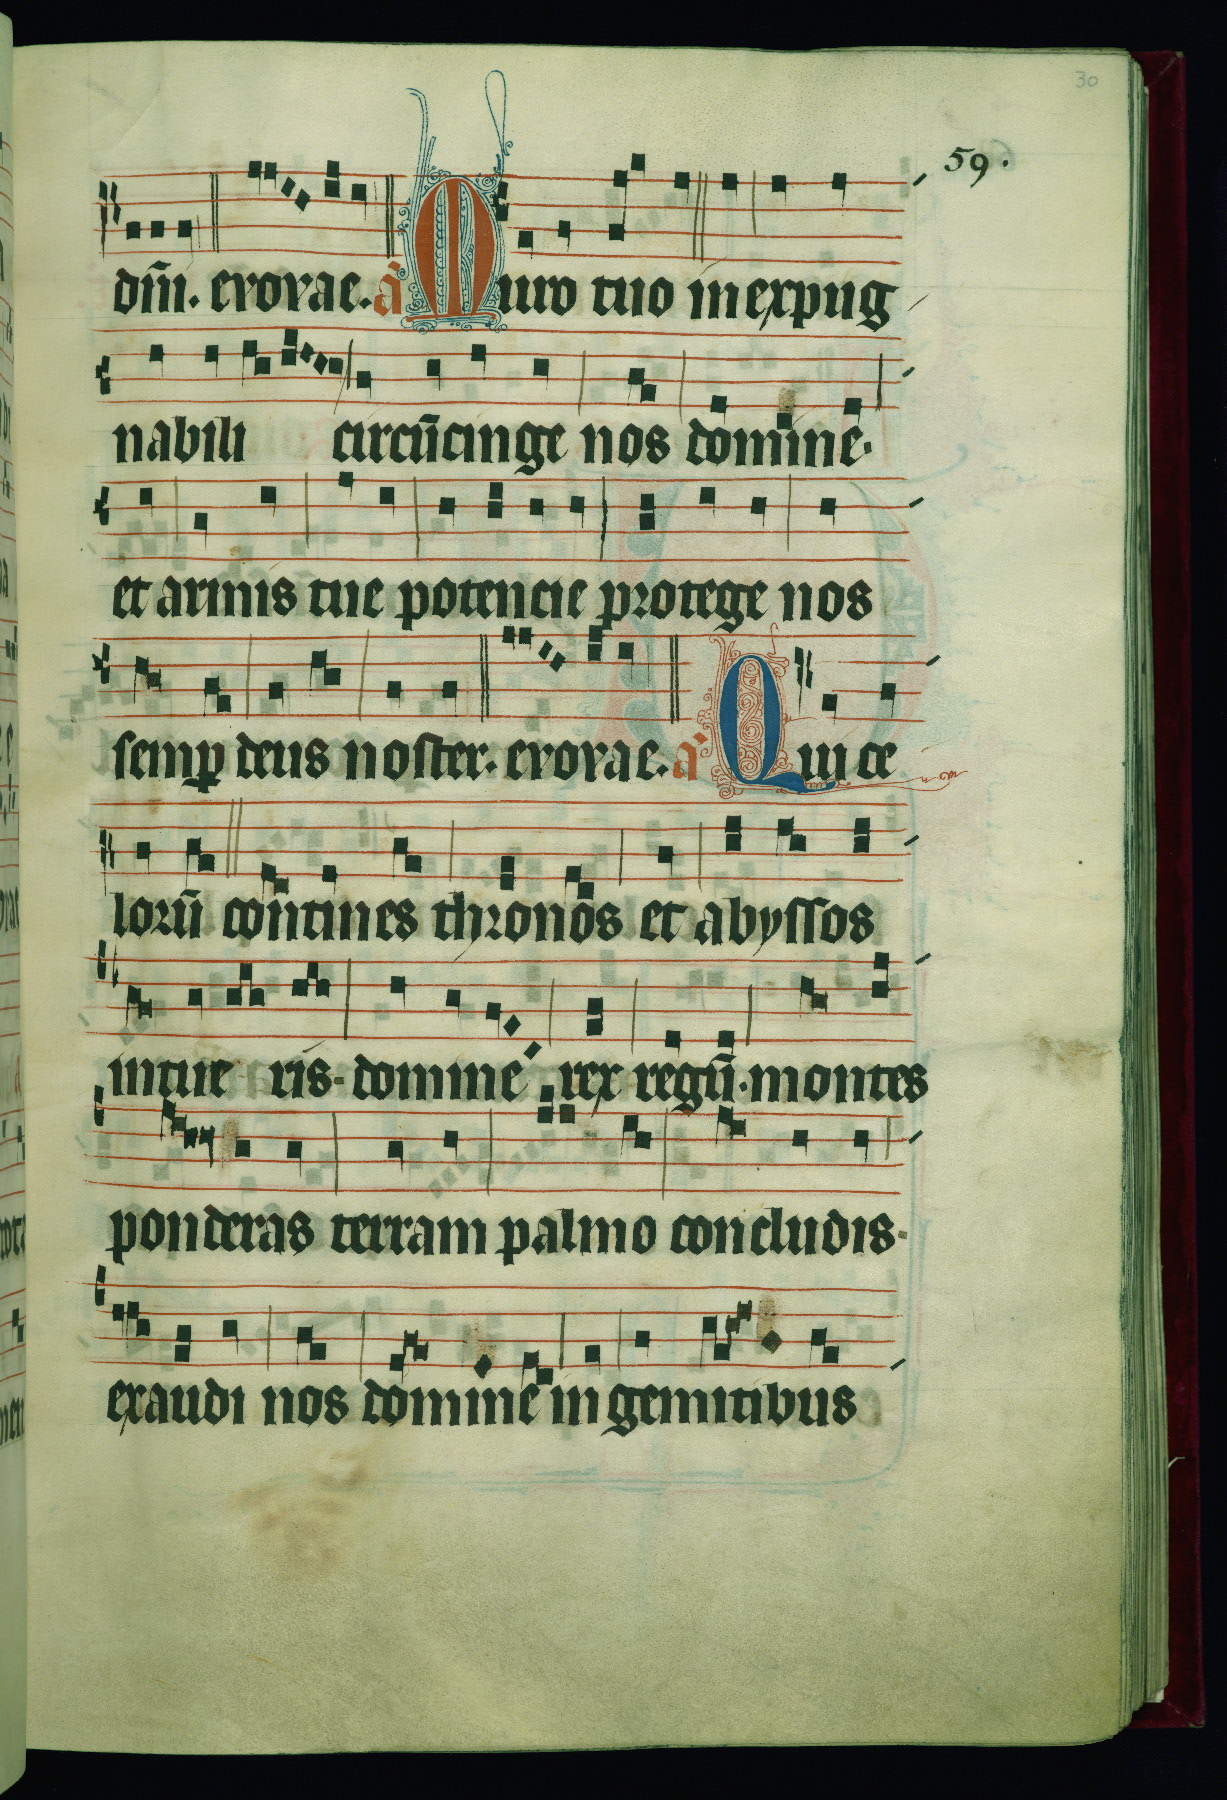 30
59.
dñi. evovae. a Muro tuo inexpug
nabili circũcinge nos domine.
et armis tue potencie protege nos
semꝑ deus noster. evovae. a Qui ce
lorũ contines thronos et abyssos
intue ris. domine rex regũ. montes
ponderas terram palmo concludis.
exaudi nos domine in gemitibus